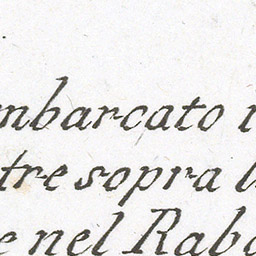 mbarcato i
tre sopra l
e nel Rabo